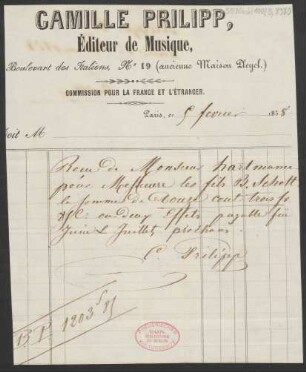 CAMILLE PRILIPP,
Éditeur de Musique,
Boulevart des Italiens, No 19 (ancienne Maison Pleyel.)
COMMISSION POUR LA FRANCE ET L'ÉTRANGER.
Paris, ce 5 fevrier 1838
Doit M
Recu de Monsieur hartmann
pour Messieurs les fils B. Schott
la somme de douze cent trois fs
en deux Effets payable fin
Juin & Juillet prochain
Ce Prilipp
B. P. 1203